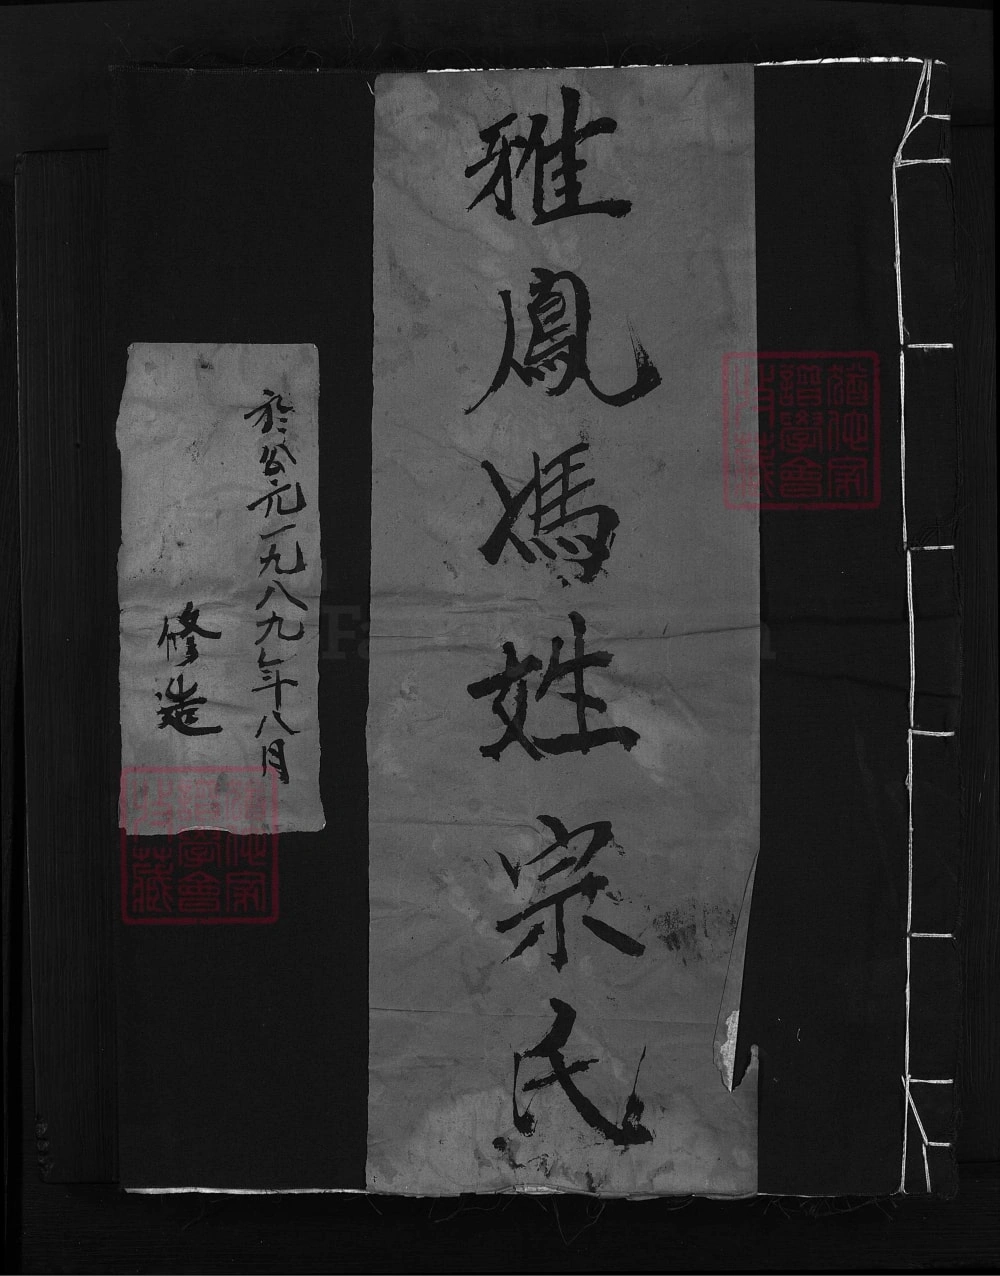 雅鳳馮姓宗氏
於公元一九八九年八月
修造
猶他家
譜學會
藏
猶他家
譜學會
藏